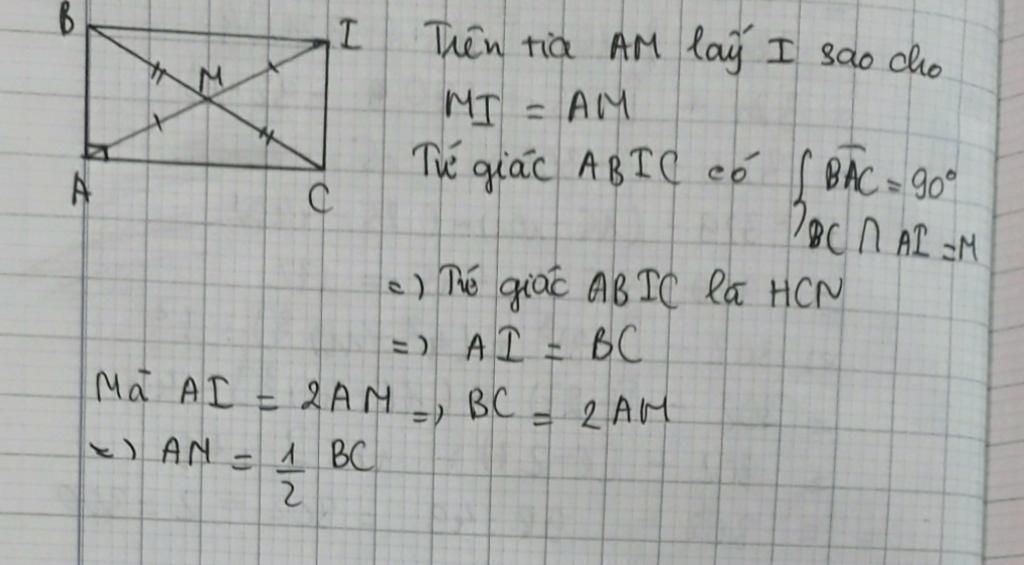 B
I
M
A
C
Trên tia AM lấy I sao cho
MI = AM
Tứ giác ABIC có { BAC = 90°
BC ∩ AI = M
=) Tứ giác ABIC là HCN
=) AI = BC
Mà AI = 2AM =) BC = 2AM
=) AM = 1/2 BC